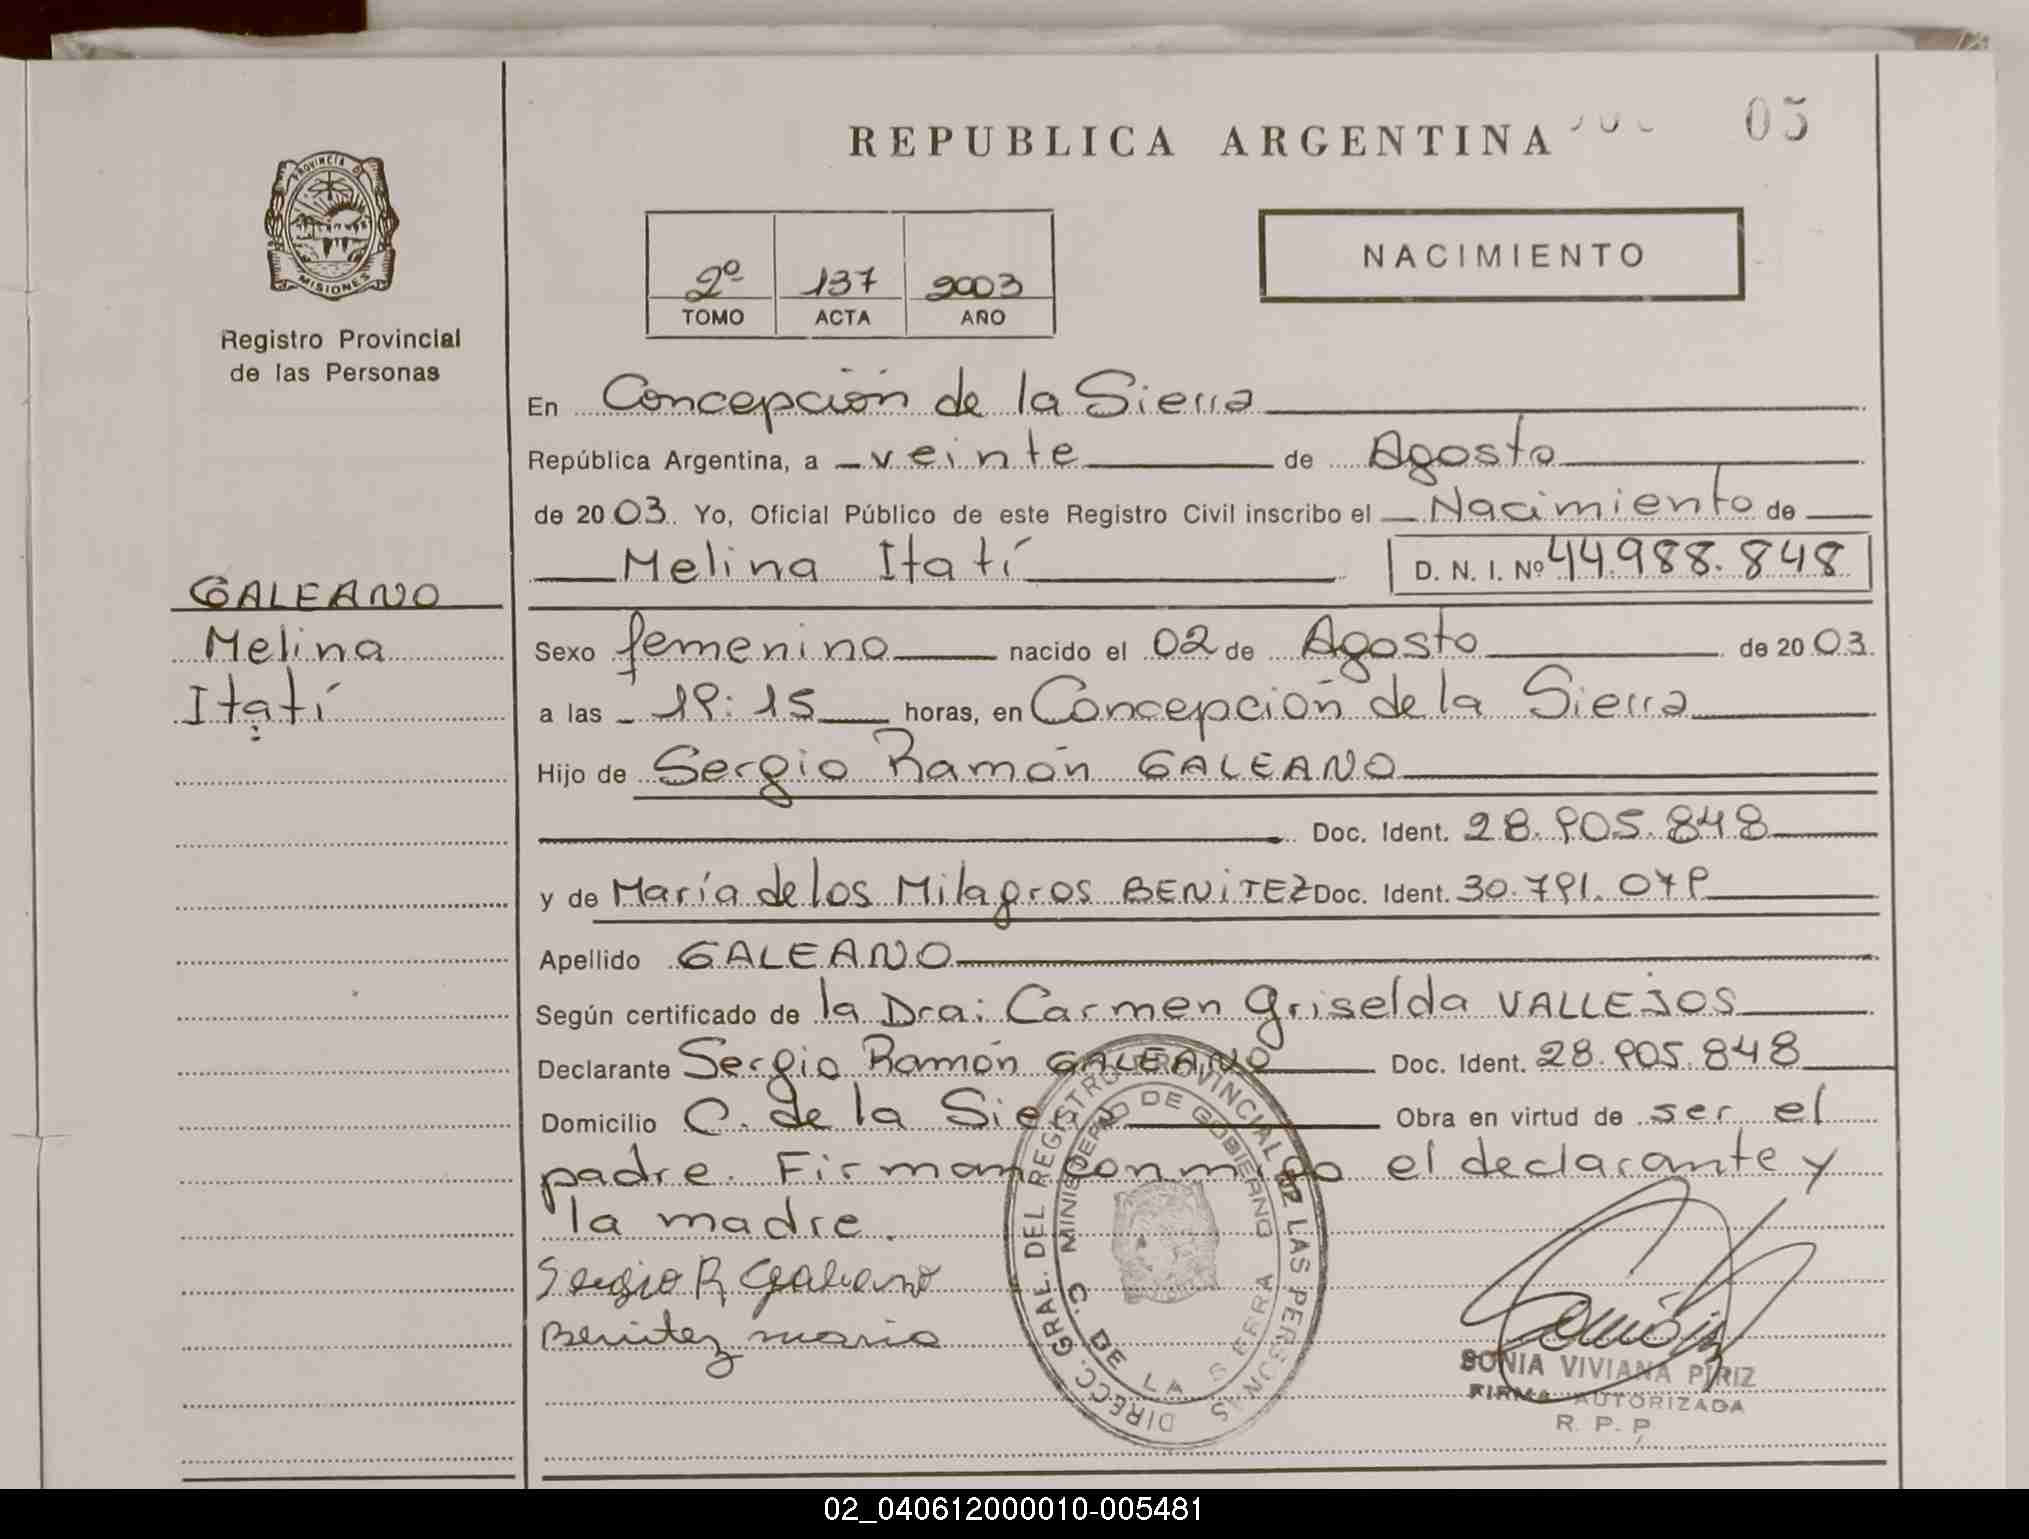 REPUBLICA ARGENTINA
05
PROVINCIA DE
MISIONES
Registro Provincial
de las Personas
NACIMIENTO
2º 137 2003
TOMO ACTA AÑO
En Concepción de la Sierra
República Argentina, a veinte de Agosto
de 2003. Yo, Oficial Público de este Registro Civil inscribo el Nacimiento de
Melina Itatí D. N. I. Nº 44.988.848
GALEANO
Melina
Itatí
Sexo femenino nacido el 02 de Agosto de 2003.
a las 19:15 horas, en Concepción de la Sierra
Hijo de Sergio Ramón GALEANO
Doc. Ident. 28.905.848
y de María de los Milagros BENITEZ Doc. Ident. 30.791.079
Apellido GALEANO
Según certificado de la Dra: Carmen Griselda VALLEJOS
Declarante Sergio Ramón GALEANO Doc. Ident. 28.905.848
Domicilio C. de la Sierra Obra en virtud de ser el
padre. Firman conmigo el declarante y
la madre.
Sergio R Galeano
Benitez maria
DIRECC. GRAL. DEL REGISTRO PROVINCIAL DE LAS PERSONAS
MINISTERIO DE GOBIERNO
C. DE LA SIERRA
SONIA VIVIANA PIRIZ
FIRMA AUTORIZADA
R. P. P.
02_040612000010-005481